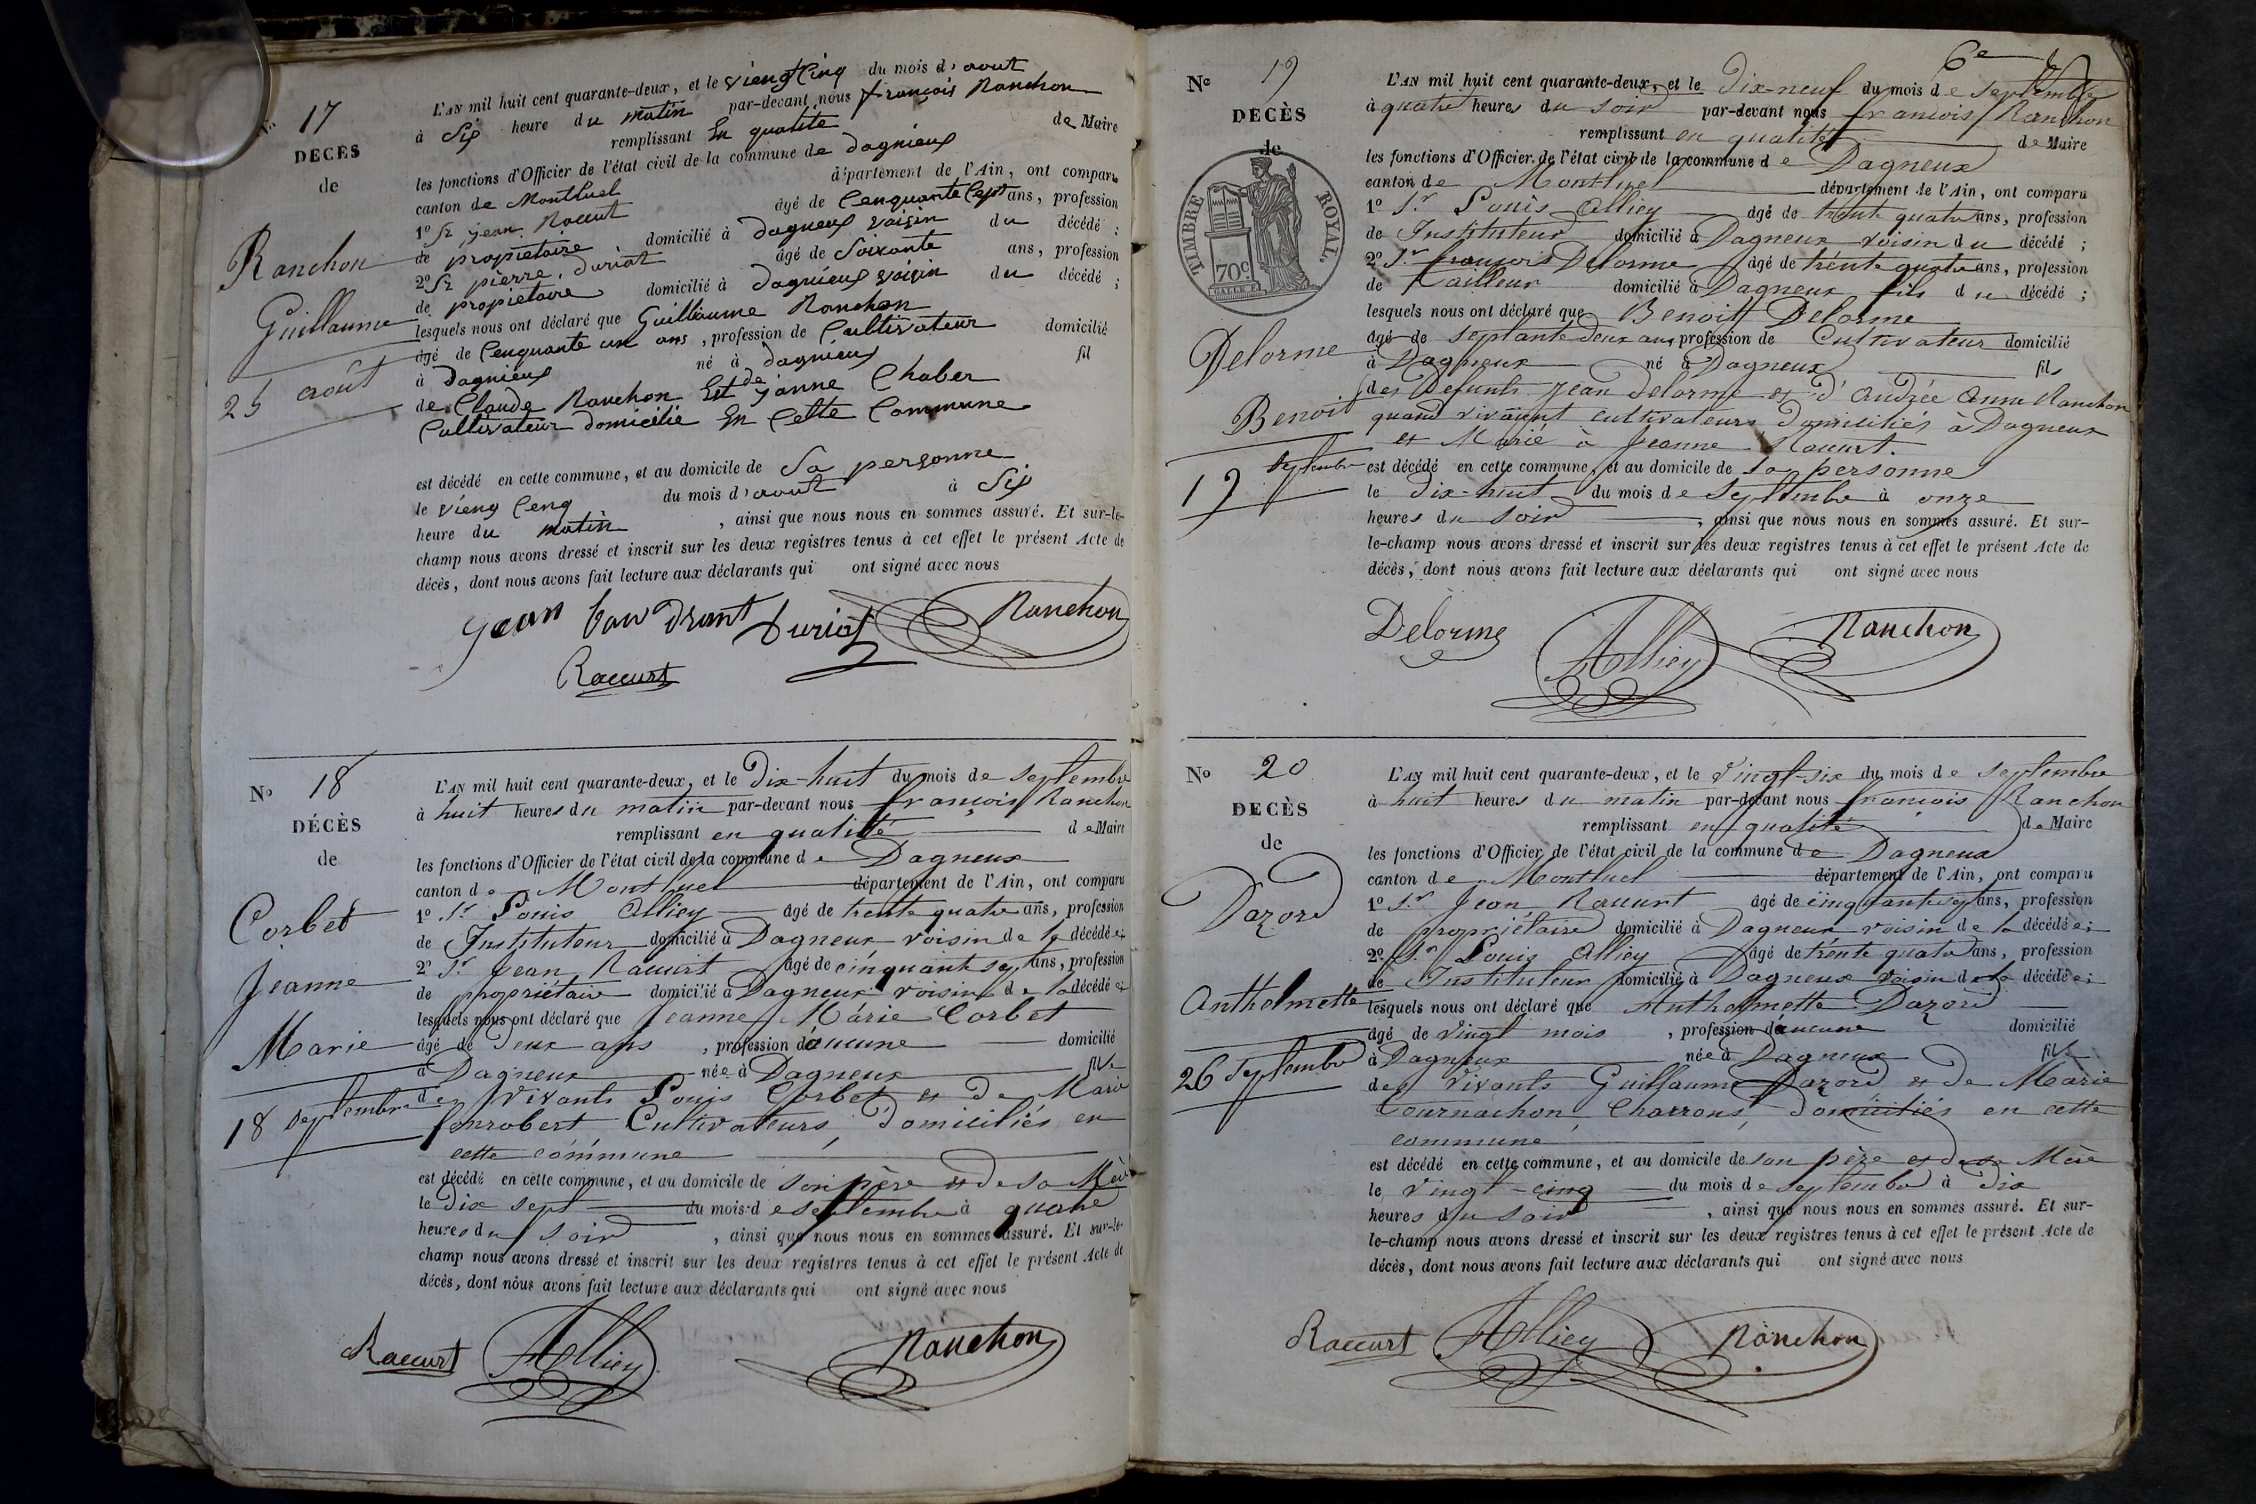 No 17
DECÈS
de
Ranchon
Guillaume
25 août
L'AN mil huit cent quarante-deux, et le vieng Cinq du mois d'aout
à Six heure du matin par-devant nous françois Ranchon
remplissant En qualite de Maire
les fonctions d'Officier de l'état civil de la commune de dagnieux
canton de Montluel département de l'Ain, ont comparu
1o Sr jean Racurt âgé de Cenquante Cept ans, profession
de propietaire domicilié à dagneux voisin du décédé ;
2o Sr pierre duriat âgé de Soixante ans, profession
de propietaire domicilié à dagnieux voisin du décédé ;
lesquels nous ont déclaré que Guillaume Ranchon
âgé de Cenquante un ans, profession de Cultivateur domicilié
à dagnieux né à dagnieux fil
de Claude Ranchon Est de janne Chaber
Cultivateur domicilié En Cette Commune
est décédé en cette commune, et au domicile de Sa personne
le vieng Cenq du mois d'aout à Six
heure du matin, ainsi que nous nous en sommes assuré. Et sur-le-
champ nous avons dressé et inscrit sur les deux registres tenus à cet effet le présent Acte de
décès, dont nous avons fait lecture aux déclarants qui ont signé avec nous
Jean Duriat Ranchon
Raccurt
No 18
DÉCÈS
de
Corbet
Jeanne
Marie
18 septembre
L'AN mil huit cent quarante-deux, et le Dix-huit du mois de septembre
à huit heures du matin par-devant nous françois Ranchon
remplissant en qualité de Maire
les fonctions d'Officier de l'état civil de la commune de Dagneux
canton de Montluel département de l'Ain, ont comparu
1o Sr Louis Alliey âgé de trente quatre ans, profession
de Instituteur domicilié à Dagneux voisin de la décédée ;
2o Sr Jean Racurt âgé de cinquante sept ans, profession
de propriétaire domicilié à Dagneux voisin de la décédée ;
lesquels nous ont déclaré que Jeanne Marie Corbet
âgé de Deux ans, profession d'aucune domicilié
à Dagneux née à Dagneux fille
des vivants Louis Corbet et de Marie
Cultivateurs, Domiciliés en
cette commune
est décédé en cette commune, et au domicile de son père et de sa Mère
le Dix sept du mois de septembre à quatre
heures du soir, ainsi que nous nous en sommes assuré. Et sur-le-
champ nous avons dressé et inscrit sur les deux registres tenus à cet effet le présent Acte de
décès, dont nous avons fait lecture aux déclarants qui ont signé avec nous
Raccurt Alliey Ranchon
6e
No 19
DECÈS
de
TIMBRE ROYAL.
70c
Delorme
Benoit
19 septembre
L'AN mil huit cent quarante-deux, et le Dix-neuf du mois de septembre
à quatre heures du soir par-devant nous françois Ranchon
remplissant en qualité de Maire
les fonctions d'Officier de l'état civil de la commune de Dagneux
canton de Montluel département de l'Ain, ont comparu
1o Sr Louis Alliey âgé de trente quatre ans, profession
de Instituteur domicilié à Dagneux voisin du décédé ;
2o Sr françois Delorme âgé de trente quatre ans, profession
de tailleur domicilié à Dagneux fils du décédé ;
lesquels nous ont déclaré que Benoit Delorme
âgé de septante deux ans, profession de Cultivateur domicilié
à Dagneux né à Dagneux fils
des Defunts Jean Delorme et d'Andrée Anne Ranchon
quand vivaient cultivateurs Domiciliés à Dagneux
et Marié à Jeanne Racurt.
est décédé en cette commune, et au domicile de sa personne
le Dix-huit du mois de septembre à onze
heures du soir, ainsi que nous nous en sommes assuré. Et sur-
le-champ nous avons dressé et inscrit sur les deux registres tenus à cet effet le présent Acte de
décès, dont nous avons fait lecture aux déclarants qui ont signé avec nous
Delorme Alliey Ranchon
No 20
DECÈS
de
Dazord
Anthelmette
26 septembre
L'AN mil huit cent quarante-deux, et le vingt-six du mois de septembre
à huit heures du matin par-devant nous françois Ranchon
remplissant en qualité de Maire
les fonctions d'Officier de l'état civil de la commune de Dagneux
canton de Montluel département de l'Ain, ont comparu
1o Sr Jean Racurt âgé de cinquante sept ans, profession
de propriétaire domicilié à Dagneux voisin de la décédée ;
2o Sr Louis Alliey âgé de trente quatre ans, profession
de Instituteur domicilié à Dagneux voisin de la décédée ;
lesquels nous ont déclaré que Anthelmette Dazord
âgé de vingt mois, profession d'aucune domicilié
à Dagneux née à Dagneux fille
des vivants Guillaume Dazord et de Marie
Tournachon, Charrons, Domiciliés en cette
commune
est décédé en cette commune, et au domicile de son père et de sa Mère
le vingt-cinq du mois de septembre à dix
heures du soir, ainsi que nous nous en sommes assuré. Et sur-
le-champ nous avons dressé et inscrit sur les deux registres tenus à cet effet le présent Acte de
décès, dont nous avons fait lecture aux déclarants qui ont signé avec nous
Raccurt Alliey Ranchon